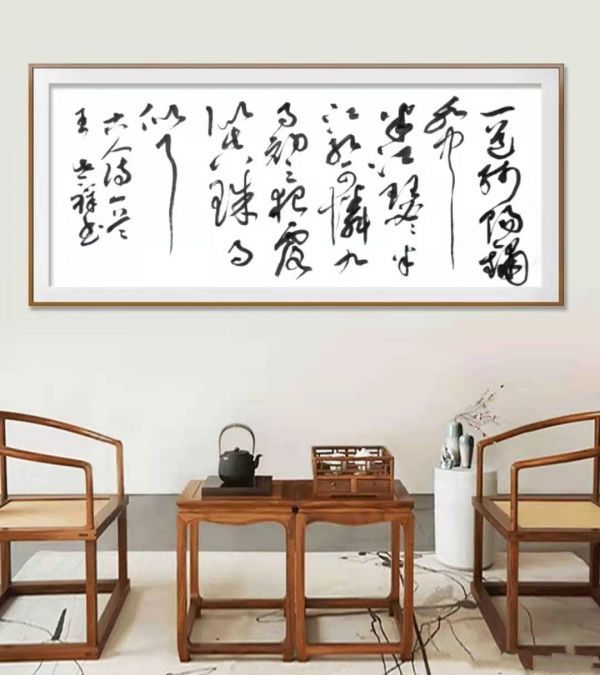 一道残阳铺
水中
半江瑟瑟半
江红可憐九
月初三夜露
似真珠月
似弓
古人诗一首
王祥书